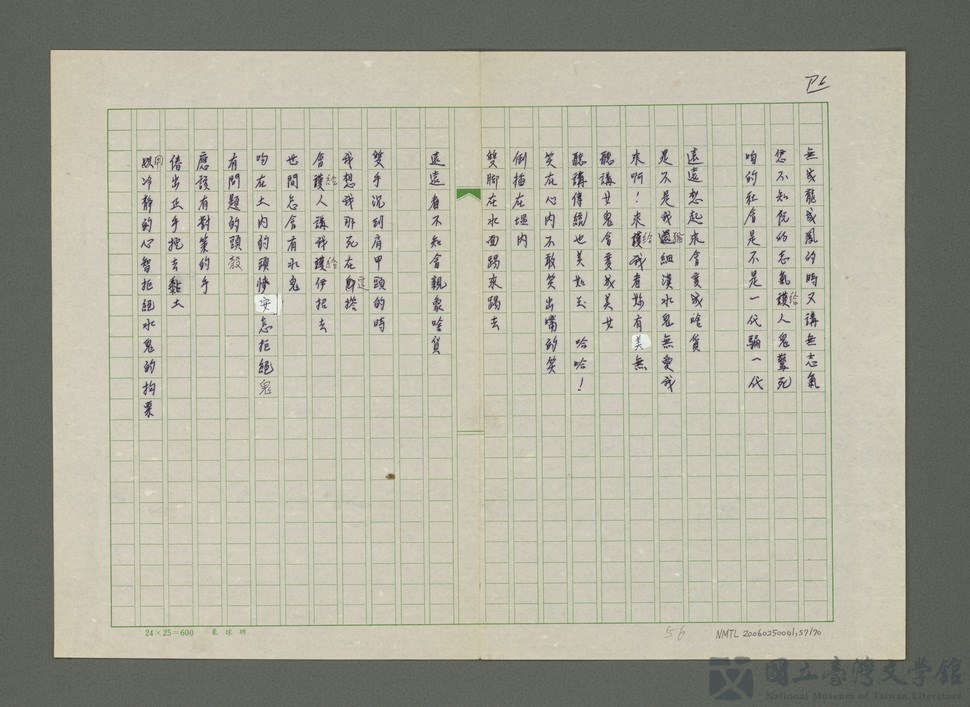 P6
無成龍成鳳的時又講無志氣
您不知阮的志氣給人鬼驚死
咱的社會是不是一代騙一代
遠遠想起來會變成啥貨
是不是我過細漢水鬼無愛我
來啊!來給我看妳有美無
聽講女鬼會變成美女
聽講傳統也美如玉 哈哈!
笑在心內不敢笑出嘴的笑
倒插在塭內
雙脚在水面踢來踢去
遠遠看不知會親象啥貨
雙手沉到肩甲頭的時
我想我那死在這
會給人講我給伊招去
世間怎會有水鬼
的在土內的頭
安怎拒絕鬼
有問題的頭殼
應該有對策的手
借出正手挖去黏土
用冷靜的心智拒絕水鬼的拘票
24×25=600
56
NMTL 20060250001,57/70
國立臺灣文學館
National Museum of Taiwan Literature